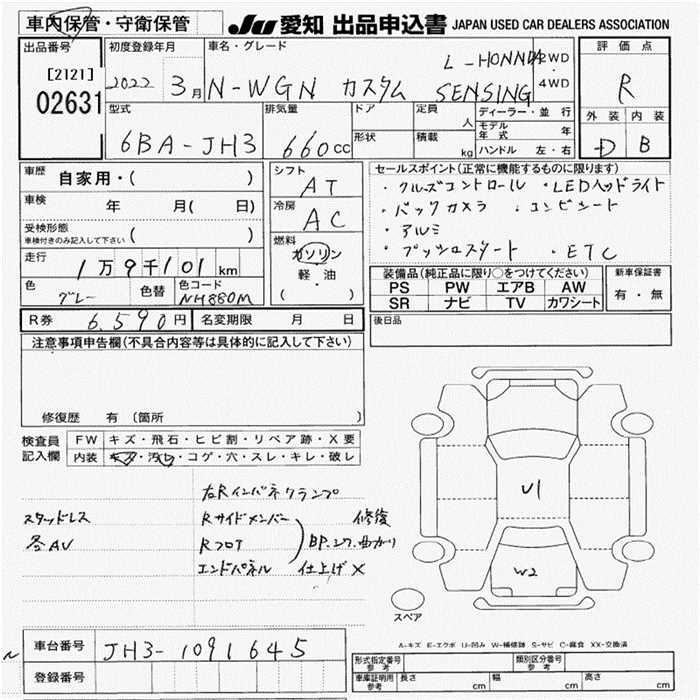 車内保管・守衛保管
JU 愛知 出品申込書 JAPAN USED CAR DEALERS ASSOCIATION
出品番号 初度登録年月 車名・グレード 評価点
[2121] 2022 3月 N-WGN カスタム L-HONNDA SENSING 2WD・4WD R
02631
型式 排気量 ドア 定員 人 ディーラー・並行 外装 内装
6BA-JH3 660cc 形状 積載 kg モデル年式 年 D B
ハンドル 左・右
車歴 自家用・( ) シフト AT セールスポイント(正常に機能するものに限ります)
車検 年 月( 日) 冷房 AC ・クルーズコントロール ・LEDヘッドライト
受検形態 ( ) ・バックカメラ ・コンビシート
車検付きのみ記入して下さい 燃料 ・アルミ
走行 1万9千101km ガソリン ・プッシュスタート ・ETC
色 グレー 色替 色コード NH880M 軽・油 ( )
装備品(純正品に限り○をつけてください) 新車保証書
PS PW エアB AW 有・無
SR ナビ TV カワシート
R券 6,590円 名変期限 月 日 後日品
注意事項申告欄(不具合内容等は具体的に記入して下さい)
修復歴 有 〔箇所 〕
検査員 FW キズ・飛石・ヒビ割・リペア跡・X要
記入欄 内装 キズ・汚レ・コゲ・穴・スレ・キレ・破レ
右Rインパネクランプ
スタッドレス Rサイドメンバー 修復
各AV Rフロア BP、コワ、曲がり
エンドパネル 仕上げX
U1
W2
スペア
A-キズ E-エクボ U-凹み W-補修跡 S-サビ C-腐食 XX-交換済
車台番号 JH3-1091645
登録番号
形式指定番号 参考 類別区分番号 参考
車庫証明用 参考 長さ cm 幅 cm 高さ cm